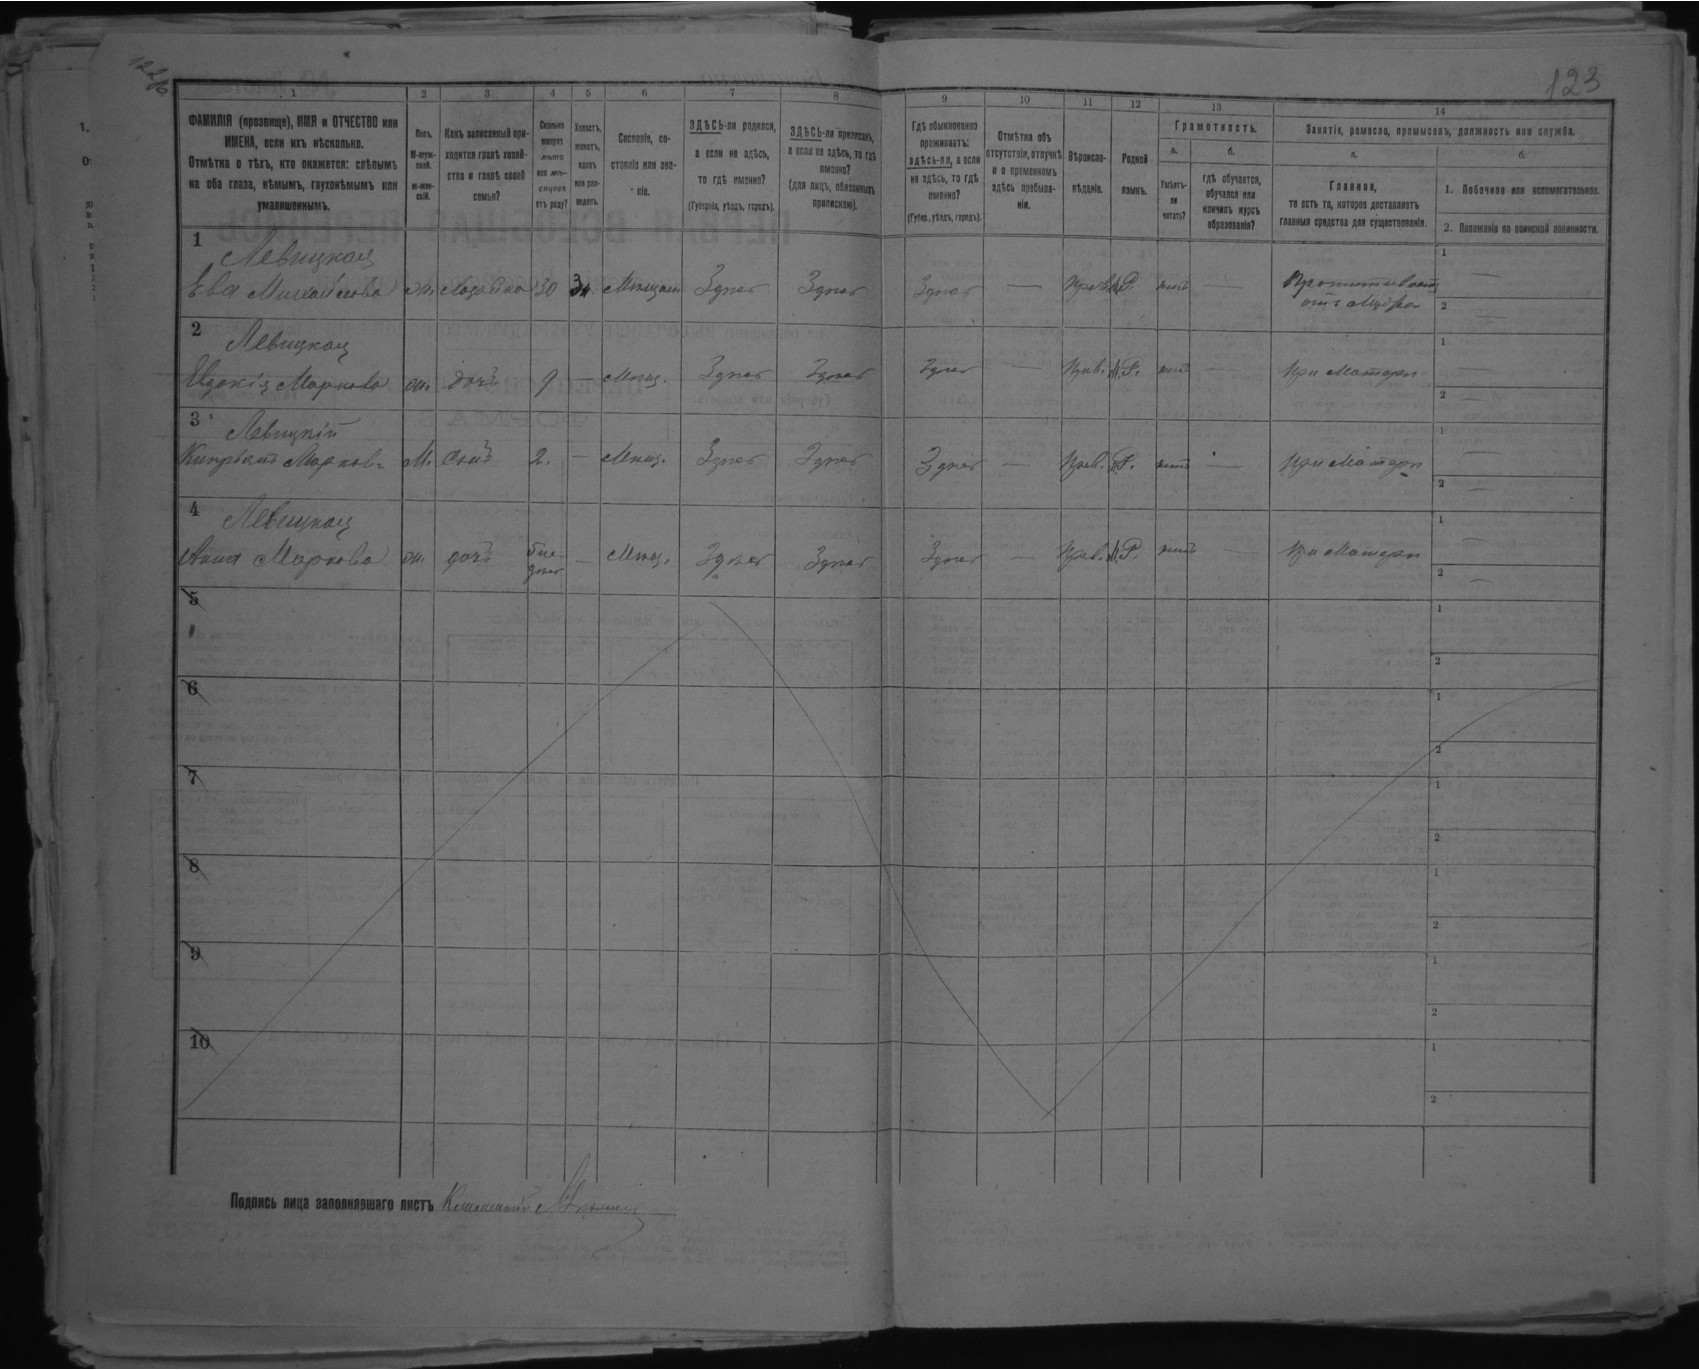 123
1 2 3 4 5 6 7 8 9 10 11 12 13 14
ФАМИЛІЯ (прозвище), ИМЯ и ОТЧЕСТВО или
ИМЕНА, если ихъ нѣсколько.
Отмѣтка о тѣхъ, кто окажется: слѣпымъ
на оба глаза, нѣмымъ, глухонѣмымъ или
умалишеннымъ.
Полъ.
М-муж-
ской.
ж-жен-
скій.
Какъ записанный при-
ходится главѣ хозяй-
ства и главѣ своей
семьи?
Сколько
минуло
лѣтъ
или мѣ-
сяцевъ
отъ роду?
Холостъ,
женатъ,
вдовъ
или раз-
веденъ.
Сословіе, со-
стояніе или зва-
ніе.
ЗДѢСЬ-ли родился,
а если не здѣсь,
то гдѣ именно?
(Губернія, уѣздъ, городъ).
ЗДѢСЬ-ли приписанъ,
а если не здѣсь, то гдѣ
именно?
(для лицъ, обязанныхъ
припискою).
Гдѣ обыкновенно
проживаетъ:
здѣсь-ли, а если
не здѣсь, то гдѣ
именно?
(Губер., уѣздъ, городъ).
Отмѣтка объ
отсутствіи, отлучкѣ
и о временномъ
здѣсь пребыва-
ніи.
Вѣроиспо-
вѣданіе.
Родной
языкъ.
Грамотность.
а.
Умѣетъ-
ли
читать?
б.
гдѣ обучается,
обучался или
кончилъ курсъ
образованія?
Занятіе, ремесло, промыселъ, должность или служба.
а.
Главное,
то есть то, которое доставляетъ
главныя средства для существованія.
б.
1. Побочное или вспомогательное.
2. Положеніе по воинской повинности.
1 Левицкая 1
Ева Михайлова ж. хозяйка 30 Зм. Мѣщан. Здѣсь Здѣсь Здѣсь — Прав. М.Р. нѣтъ —
отъ Мужа 2
2 Левицкая 1
Евдокія Маркова ж. дочь 9 — Мѣщ. Здѣсь Здѣсь Здѣсь — Прав. М.Р. нѣтъ — при Матери
2
3 Левицкій 1
Марковъ М. сынъ 2. — Мѣщ. Здѣсь Здѣсь Здѣсь — Прав. М.Р. нѣтъ — при Матери
2
4 Левицкая 1
Анна Маркова ж. дочь — Мѣщ. Здѣсь Здѣсь Здѣсь — Прав. М.Р. нѣтъ — при Матери
2
5 1
2
6 1
2
7 1
2
8 1
2
9 1
2
10 1
2
Подпись лица заполнявшаго листъ